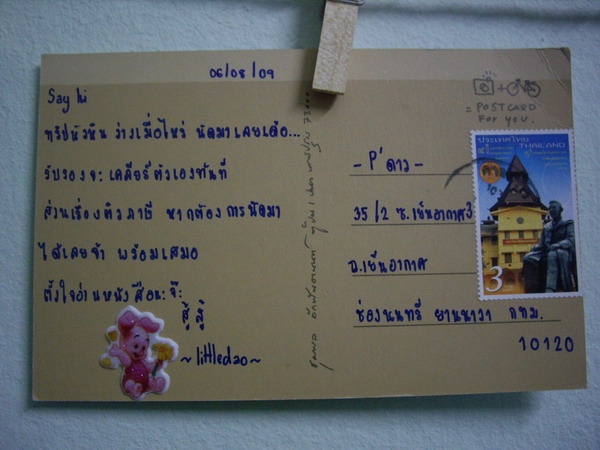 06/08/09
Say hi
ทริปหัวหิน ว่างเมื่อไหร่ นัดมาเลยเด้อ...
รับรองจะ เคลียร์ตัวเองทันที
ส่วนเรื่องติว ภาษี หากต้องการนัดมา
ได้เลยจ้า พร้อมเสมอ
ตั้งใจอ่านหนังสือนะจ๊ะ
สู้ สู้
~littledao~
= POSTCARD
FOR YOU.
ประเทศไทย
THAILAND
3
- P'ดาว -
35/2 ซ.เย็นอากาศ3
ถ.เย็นอากาศ
ช่องนนทรี ยานนาวา กทม.
10120